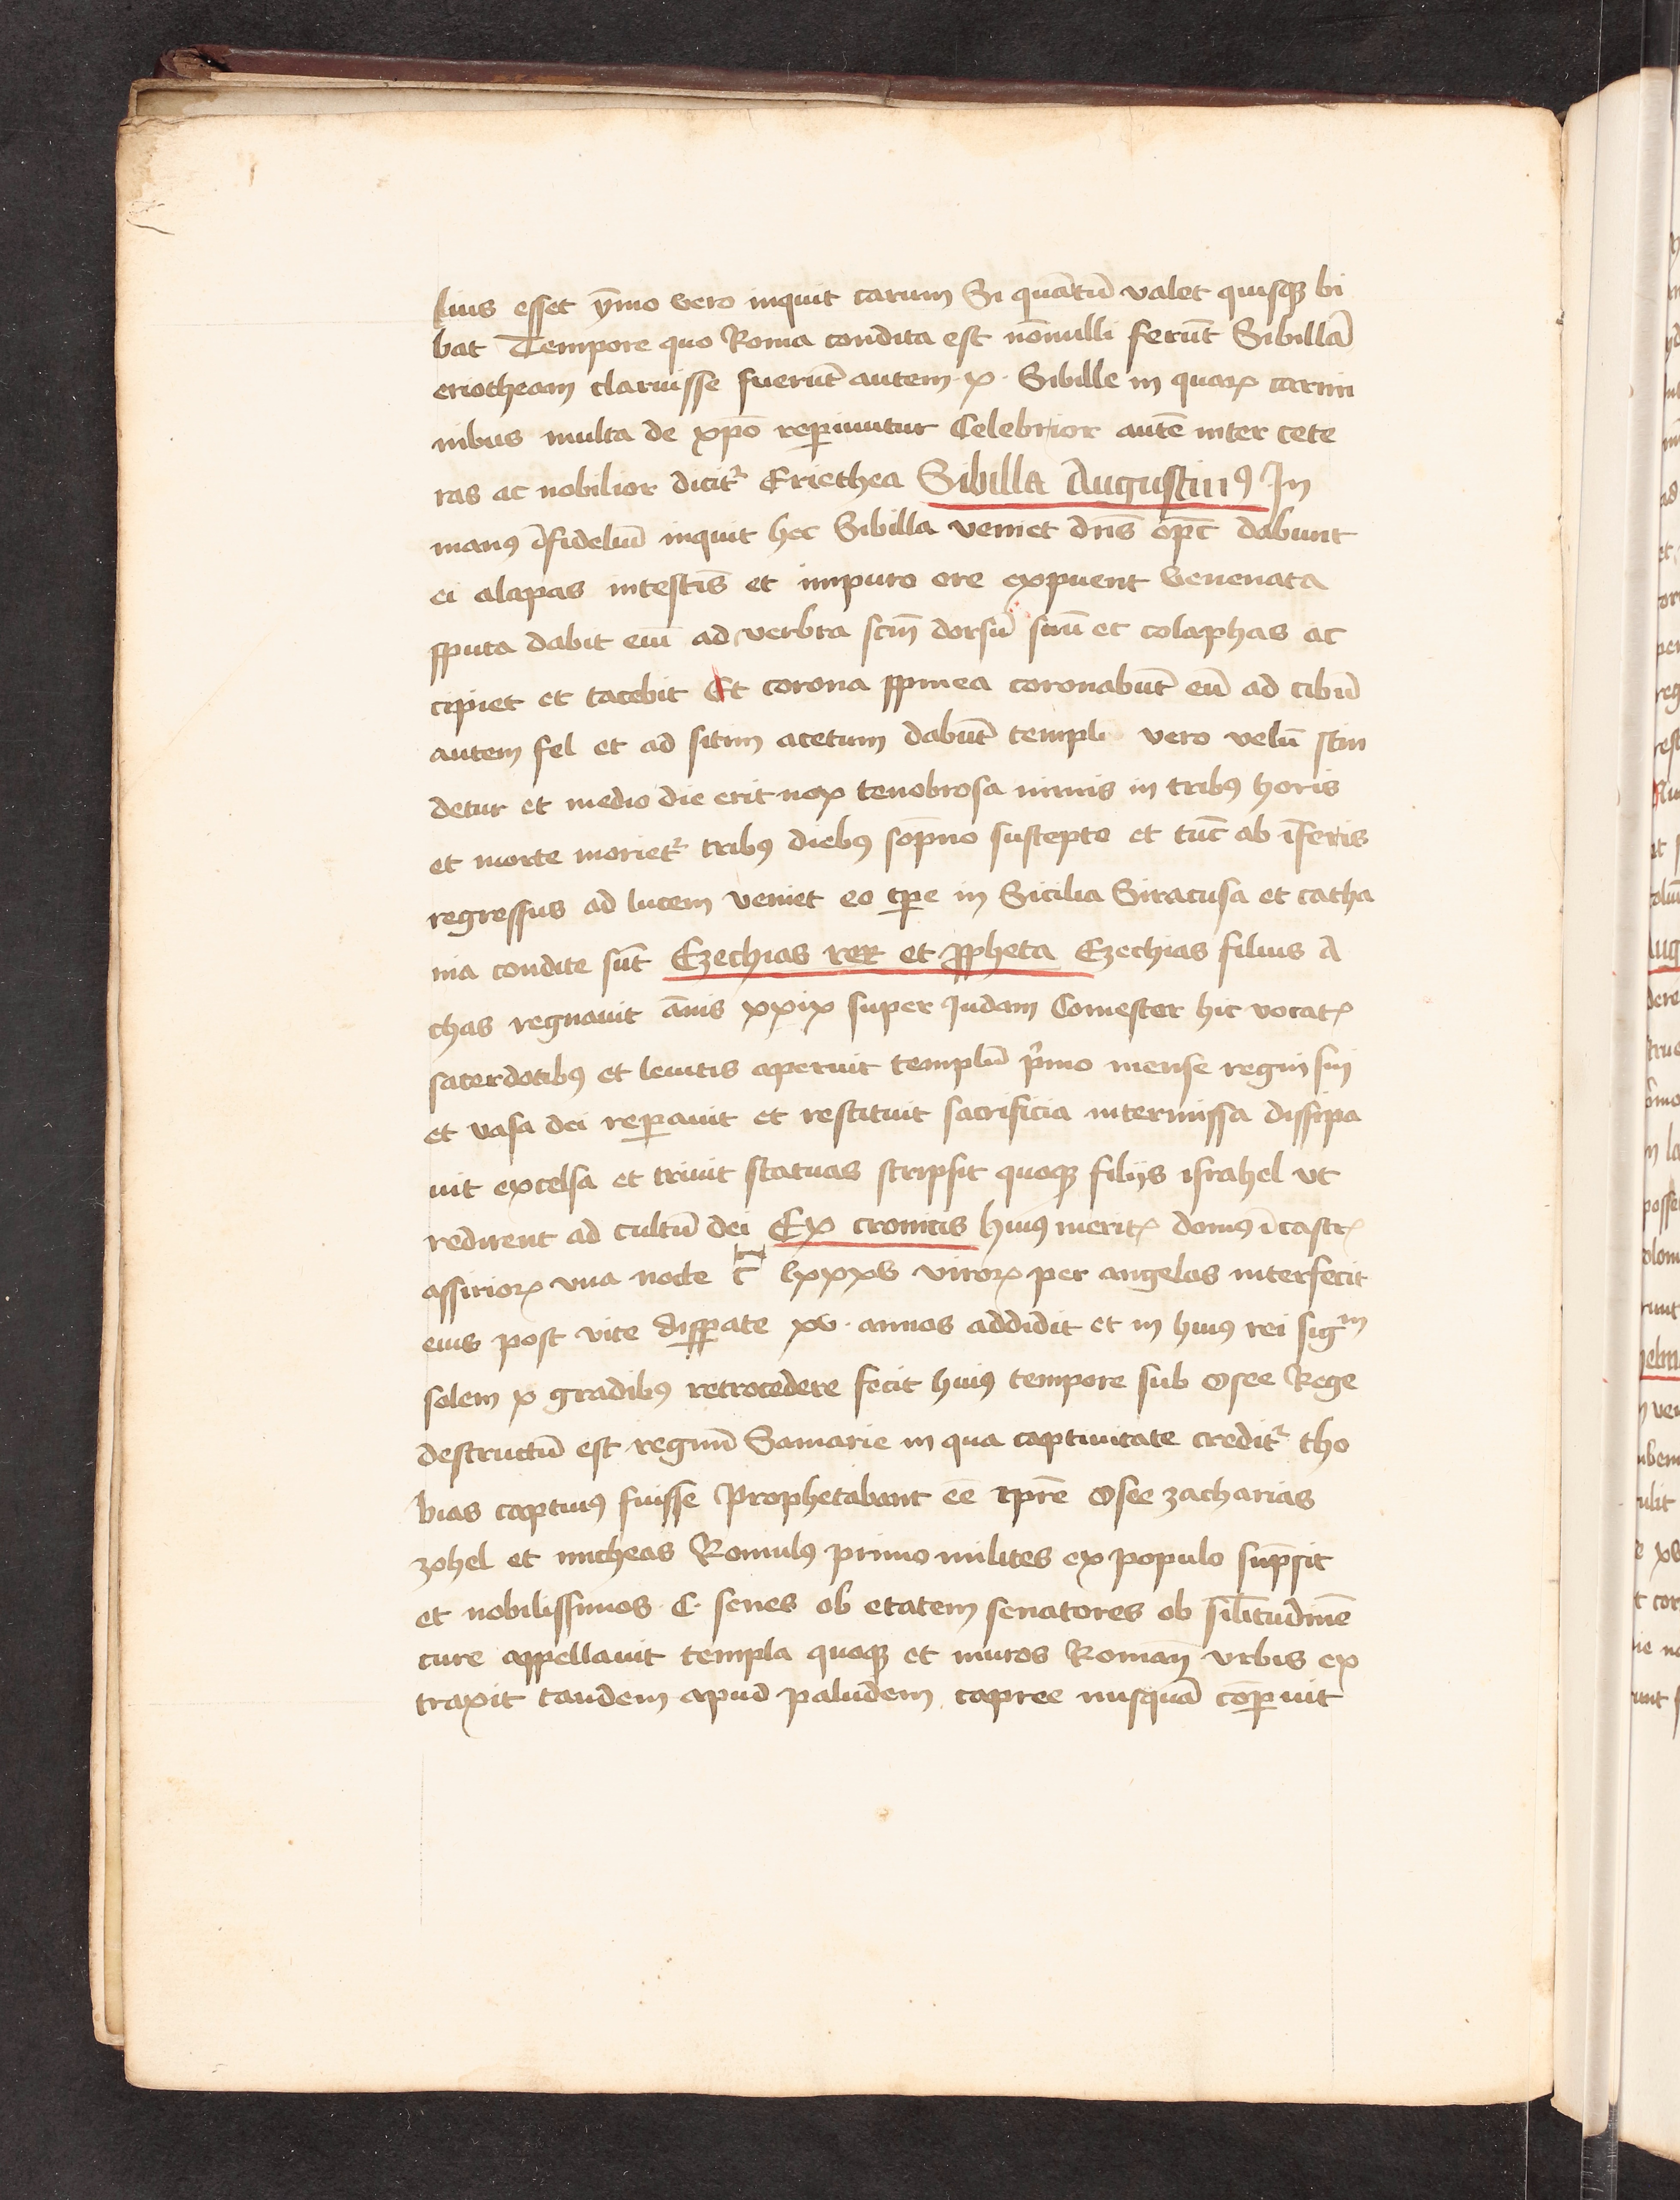 lius esset ȳmo vero inquit carum Si quātū valet quisqꝫ bi
bat Tempore quo Roma condita est nōnulli ferūt Sibillā
eriotheam claruisse fuerūt autem ·x· Sibille in quaꝝ carmi
nibus multa de xp̄o reperiuntur Celebrior autē inter cete
ras ac nobilior dicit᷑ Eriethea Sibilla Augustinꝰ In
manꝰ īfideliū inquit hec Sibilla veniet dn̄s op̄c dabunt
ei alapas intestis̄ et impuro ore expuent venenata
sputa dabit eiū ad verbra scm̄ dorsū suū et colaphas ac
cipiet et tacebit Et corona spinea coronabūt eū ad cibū
autem fel et ad sitim acetum dabūt templi vero velū scin
detur et medio die erit nox tenobrosa nimis in tribꝰ horis
et morte moriet᷑ tribꝰ diebꝰ sop̄no suscepto et tūc ab īferis
regressus ad lucem veniet eo tp̄e in Sicilia Siracusa et catha
nia condite sūt Ezechias rex et ꝓpheta Ezechias filius A
chas regnauit ānis xxix super Judam Comestor hic vocatꝭ
sacerdotibꝰ et leuitis aperuit templū p̄mo mense regni sui
et vasa dei reꝑauit et restituit sacrificia intermissa dissipa
uit excelsa et triuit statuas scripsit quoqꝫ filijs israhel vt
redirent ad cultū dei Ex cronicis huiꝰ meritꝭ domꝰ ī castrꝭ
assirioꝝ vna nocte c̄ lxxxv viroꝝ per angelos interfecit
eius post vite disꝑate xv· annos addidit et in huiꝰ rei sigᵐ
solem x gradibꝰ retrocedere fecit huiꝰ tempore sub Osee Rege
destructū est regnū Samarie in qua captiuitate credit᷑ tho
bias captiuꝰ fuisse Prophetabant eē tp̄re Osee zacharias
zohel et micheas Romulꝰ primo milites ex populo sūpsit
et nobilissimos ·C· senes ob etatem senatores ob sil̄itudinē
cure appellauit templa quoqꝫ et muros Roman̄ vrbis ex
traxit tandem apud paludem capree nusquā cōꝑuit